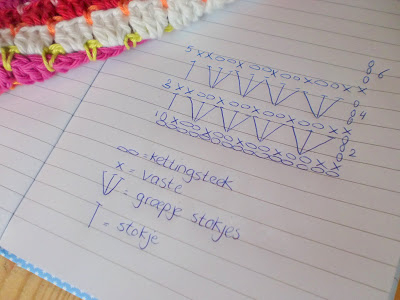 5 x x o o x o o x o o x o o x x 6
3 x o o x o o x o o x o o x x 4
1 o x o o x o o x o o x o o x x 2
oo = kettingsteek
x = vaste
= groepje stokjes
= stokje